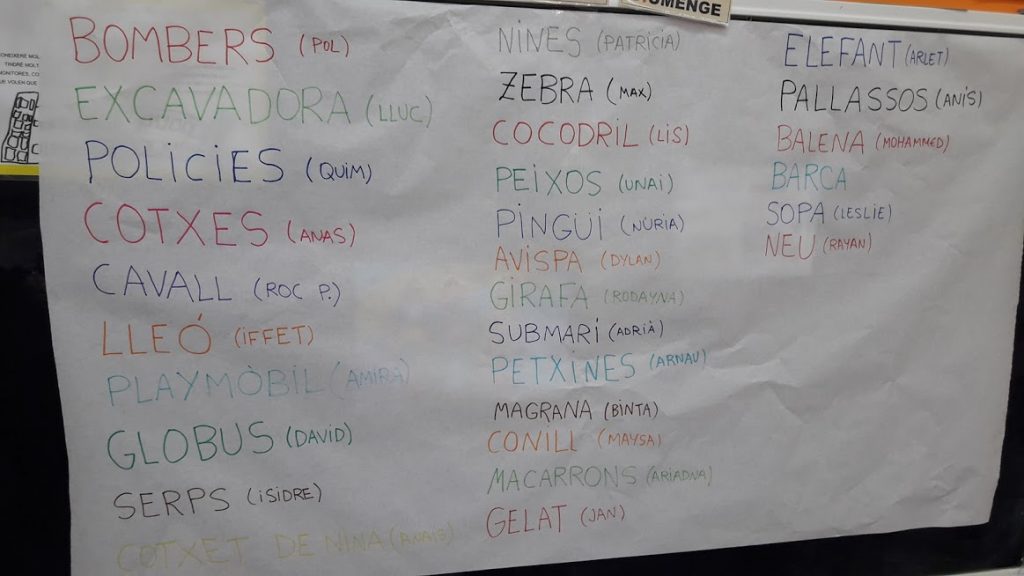 BOMBERS (POL)
EXCAVADORA (LLUC)
POLICIES (QUIM)
COTXES (ANAS)
CAVALL (ROC P.)
LLEÓ (IFFET)
PLAYMÒBIL (AMIRA)
GLOBUS (DAVID)
SERPS (ISIDRE)
COTXET DE NINA (ANAIS)
NINES (PATRICIA)
ZEBRA (MAX)
COCODRIL (LIS)
PEIXOS (UNAI)
PINGÜI (NÚRIA)
AVISPA (DYLAN)
GIRAFA (RODAYNA)
SUBMARÍ (ADRIÀ)
PETXINES (ARNAU)
MAGRANA (BINTA)
CONILL (MAYSA)
MACARRONS (ARIADNA)
GELAT (JAN)
ELEFANT (ARLET)
PALLASSOS (ANIS)
BALENA (MOHAMMED)
BARCA
SOPA (LESLIE)
NEU (RAYAN)